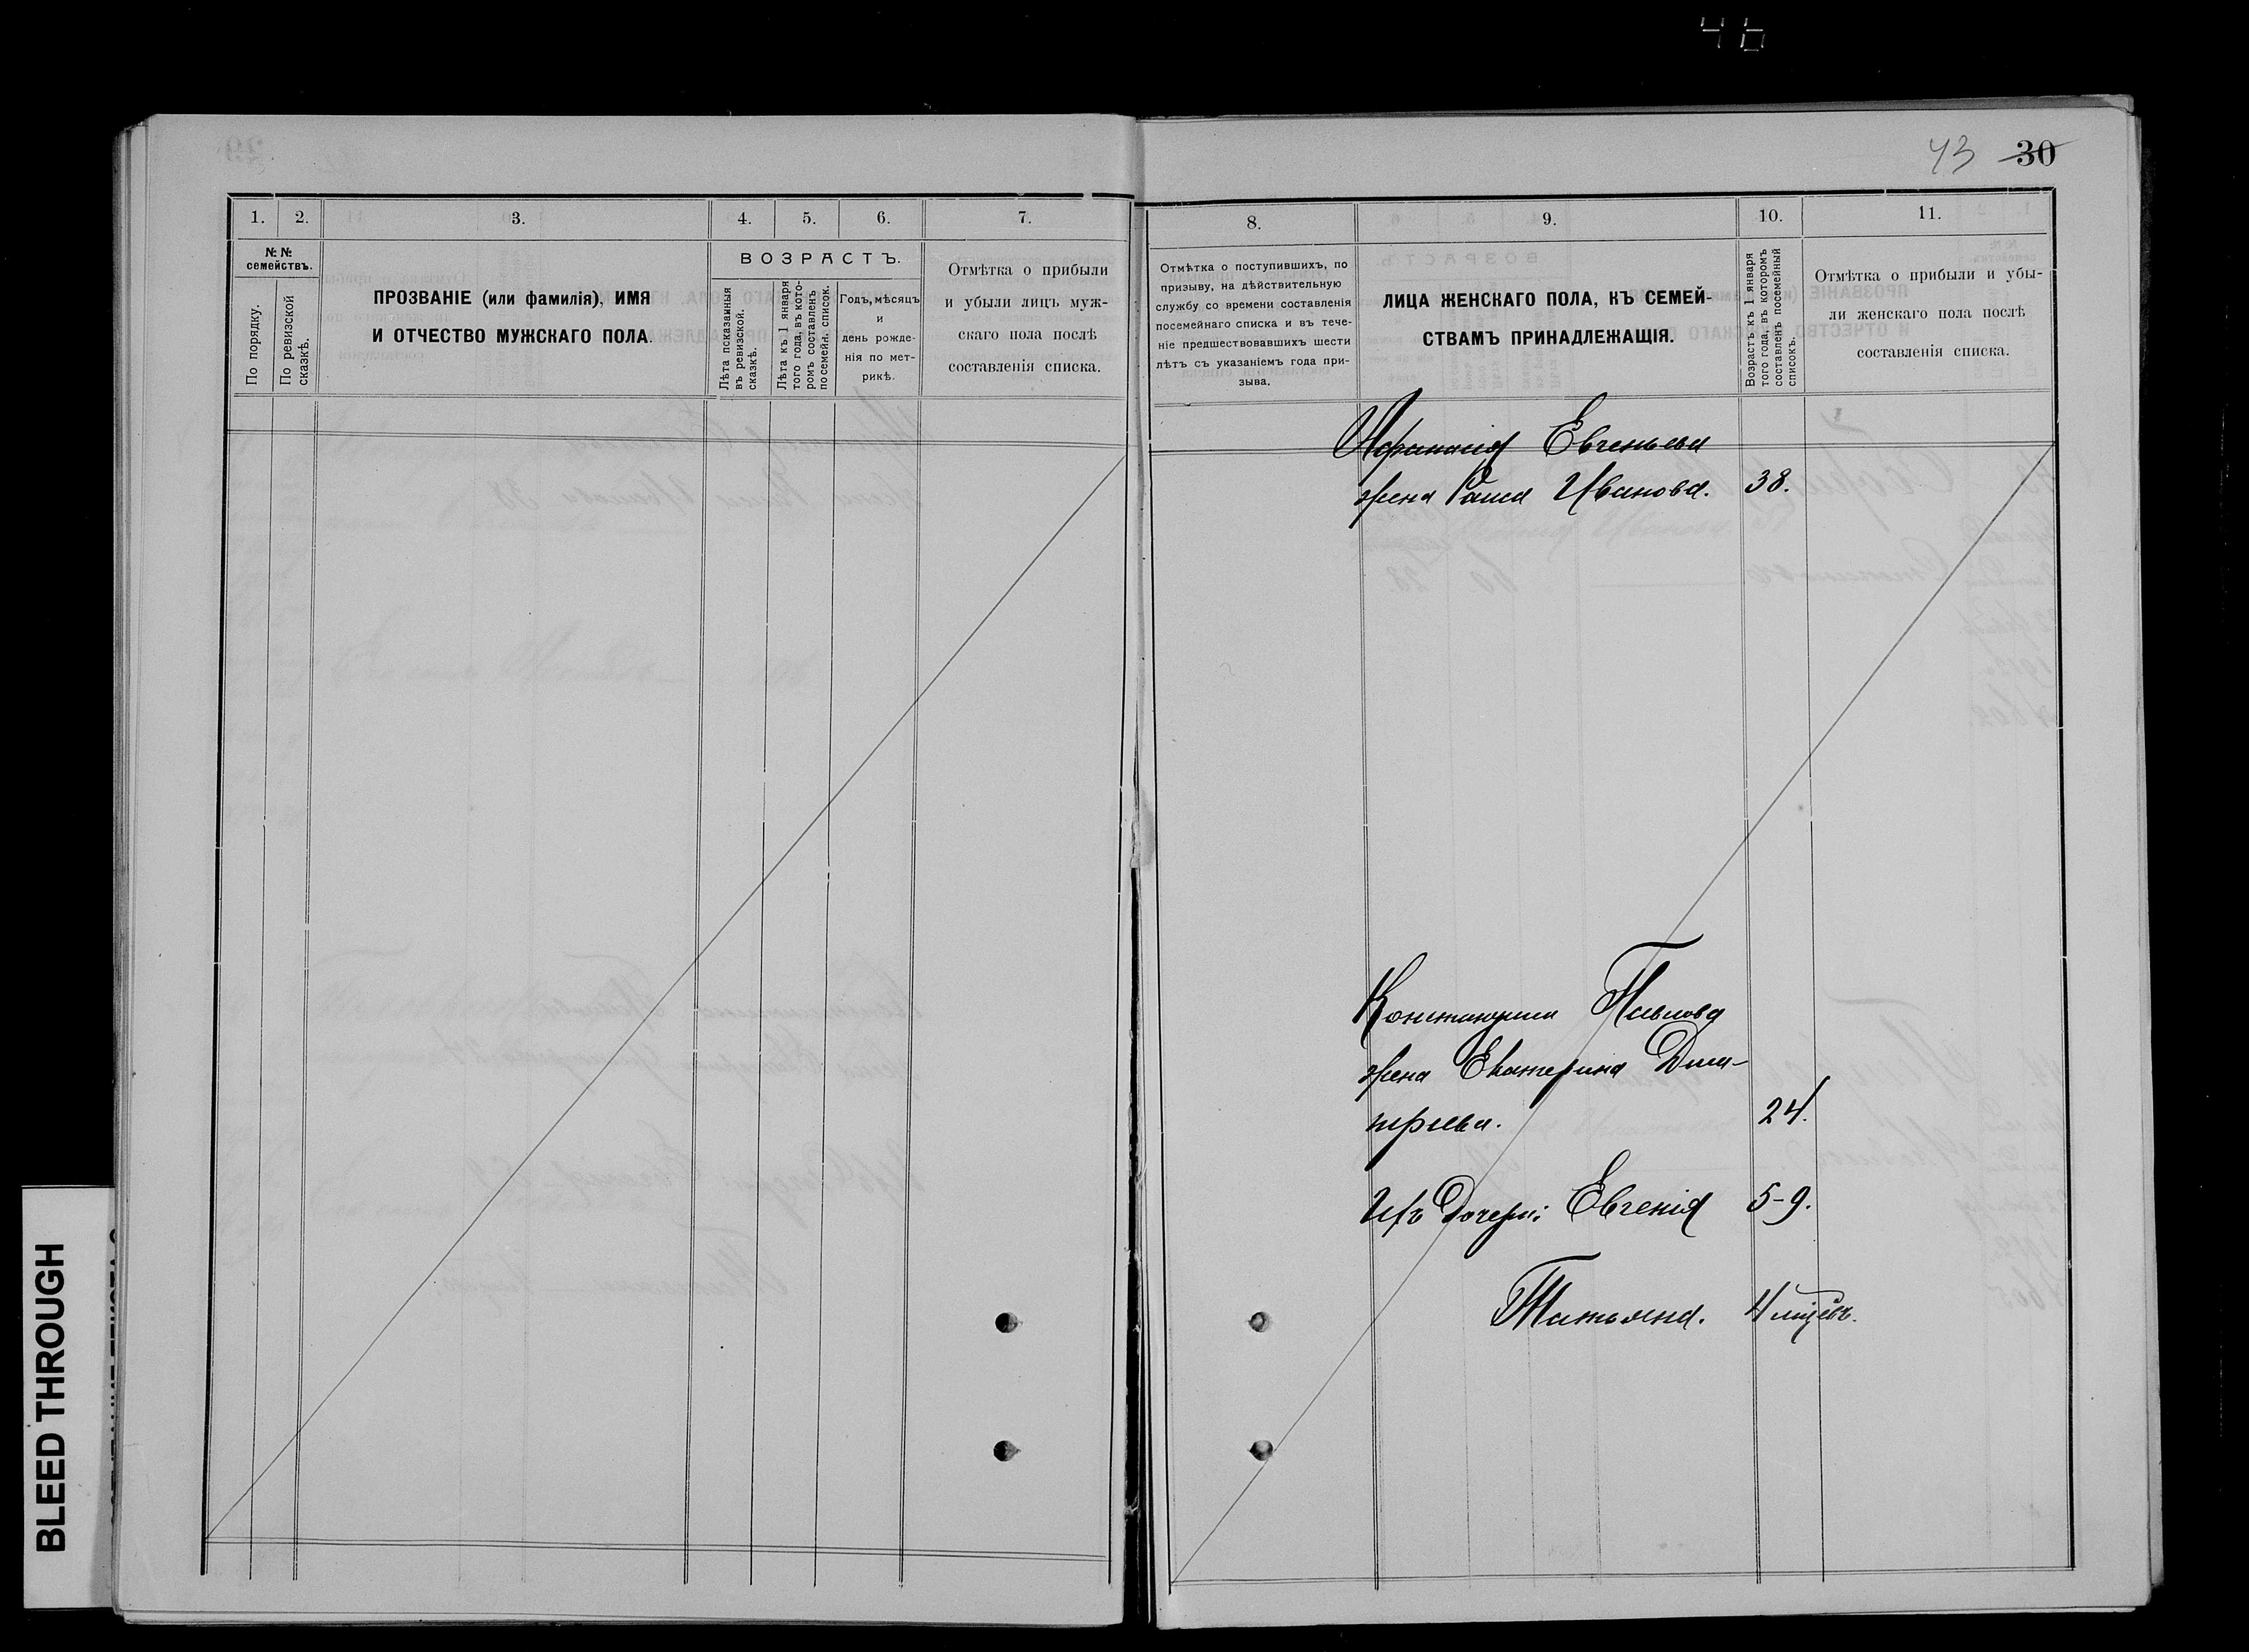 46
43 30
1. 2. 3. 4. 5. 6. 7.
№ №
семействъ.
По порядку.
По ревизской
сказкѣ.
ПРОЗВАНІЕ (или фамилія), ИМЯ
И ОТЧЕСТВО МУЖСКАГО ПОЛА.
ВОЗРАСТЪ.
Лѣта показанныя
въ ревизской.
сказкѣ.
Лѣта къ 1 января
того года, въ кото-
ромъ составленъ
посемейн. список.
Годъ, мѣсяцъ
и
день рожде-
нія по мет-
рикѣ.
Отмѣтка о прибыли
и убыли лицъ муж-
скаго пола послѣ
составленія списка.
8. 9. 10. 11.
Отмѣтка о поступившихъ, по
призыву, на дѣйствительную
службу со времени составленія
посемейнаго списка и въ тече-
ніе предшествовавшихъ шести
лѣтъ съ указаніемъ года при-
зыва.
ЛИЦА ЖЕНСКАГО ПОЛА, КЪ СЕМЕЙ-
СТВАМЪ ПРИНАДЛЕЖАЩІЯ.
Возрастъ къ 1 января
того года, въ которомъ
составленъ посемейный
списокъ.
Отмѣтка о прибыли и убы-
ли женскаго пола послѣ
составленія списка.
Афанасія Евгеньева
жена Раиса Иванова. 38.
Константина Павлова
жена Екатерина Дми-
тріева. 24.
Ихъ дочери: Евгенія 5-9.
Татьяна. 4 мѣсяц.
BLEED THROUGH